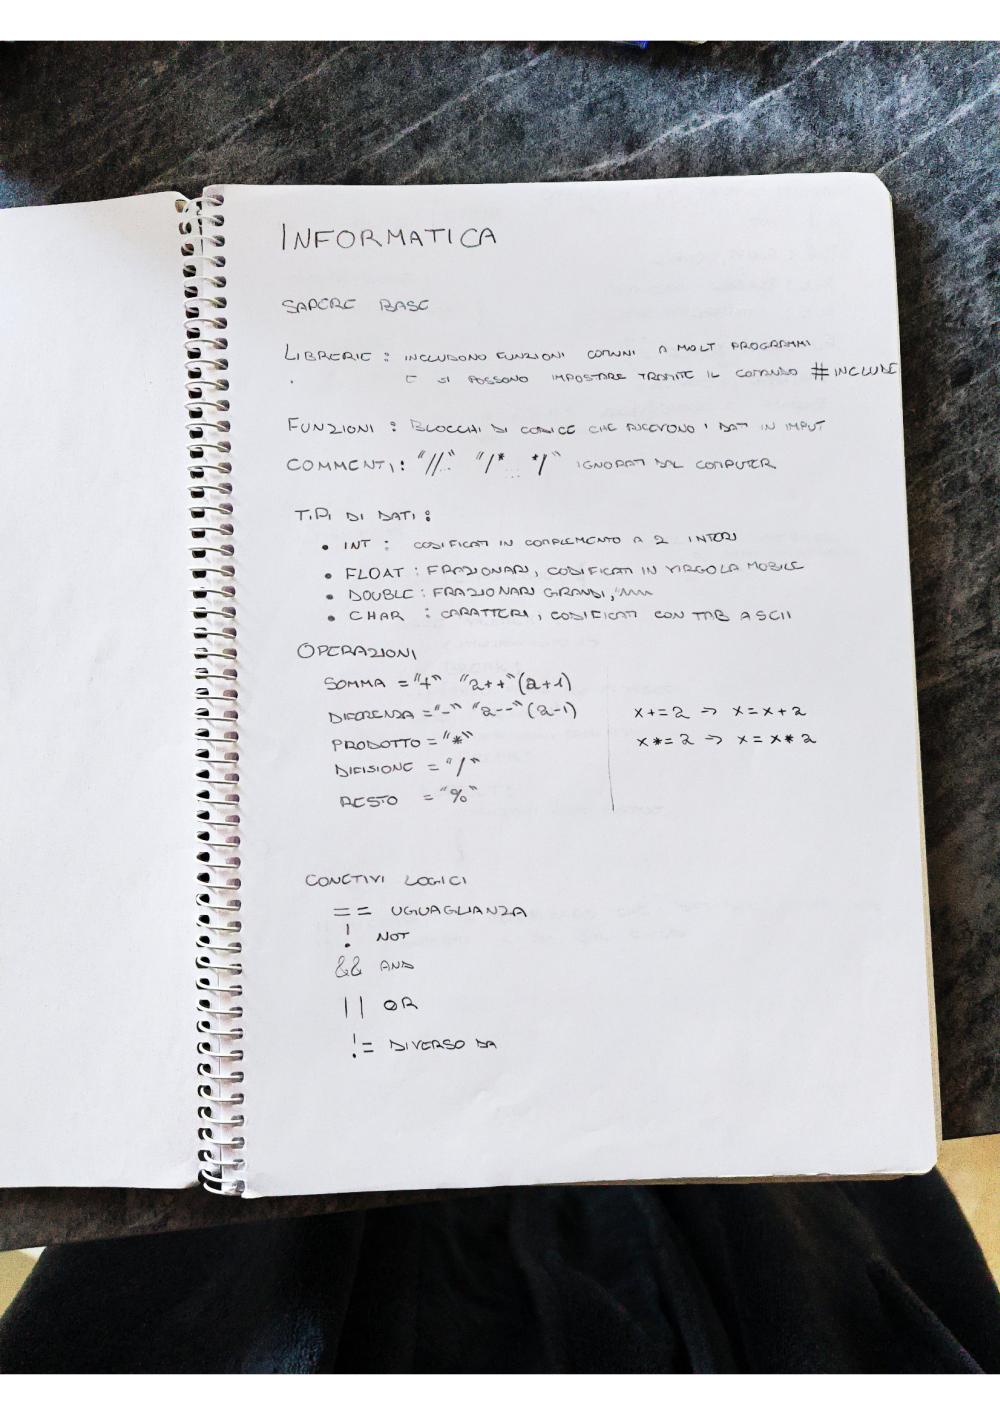 INFORMATICA
SAPERE BASE
LIBRERIE : INCLUDONO FUNZIONI COMUNI A MOLT PROGRAMMI
E SI POSSONO IMPOSTARE TRAMITE IL COMANDO #INCLUDE
FUNZIONI : BLOCCHI DI CODICE CHE RICEVONO I DATI IN IMPUT
COMMENTI : "//..." "/* ... */" IGNORATI DAL COMPUTER
TIPI DI DATI :
• INT : CODIFICATI IN COMPLEMENTO A 2 INTERI
• FLOAT : FRAZIONARI, CODIFICATI IN VIRGOLA MOBILE
• DOUBLE : FRAZIONARI GRANDI,
• CHAR : CARATTERI, CODIFICATI CON TAB ASCII
OPERAZIONI
SOMMA = "+" "a++" (a+1)
DIFERENZA = "-" "a--" (a-1) x+=2 => x=x+2
PRODOTTO = "*" x*=2 => x=x*2
DIFISIONE = "/"
RESTO = "%"
CONETIVI LOGICI
== UGUAGLIANZA
! NOT
&& AND
|| OR
!= DIVERSO DA